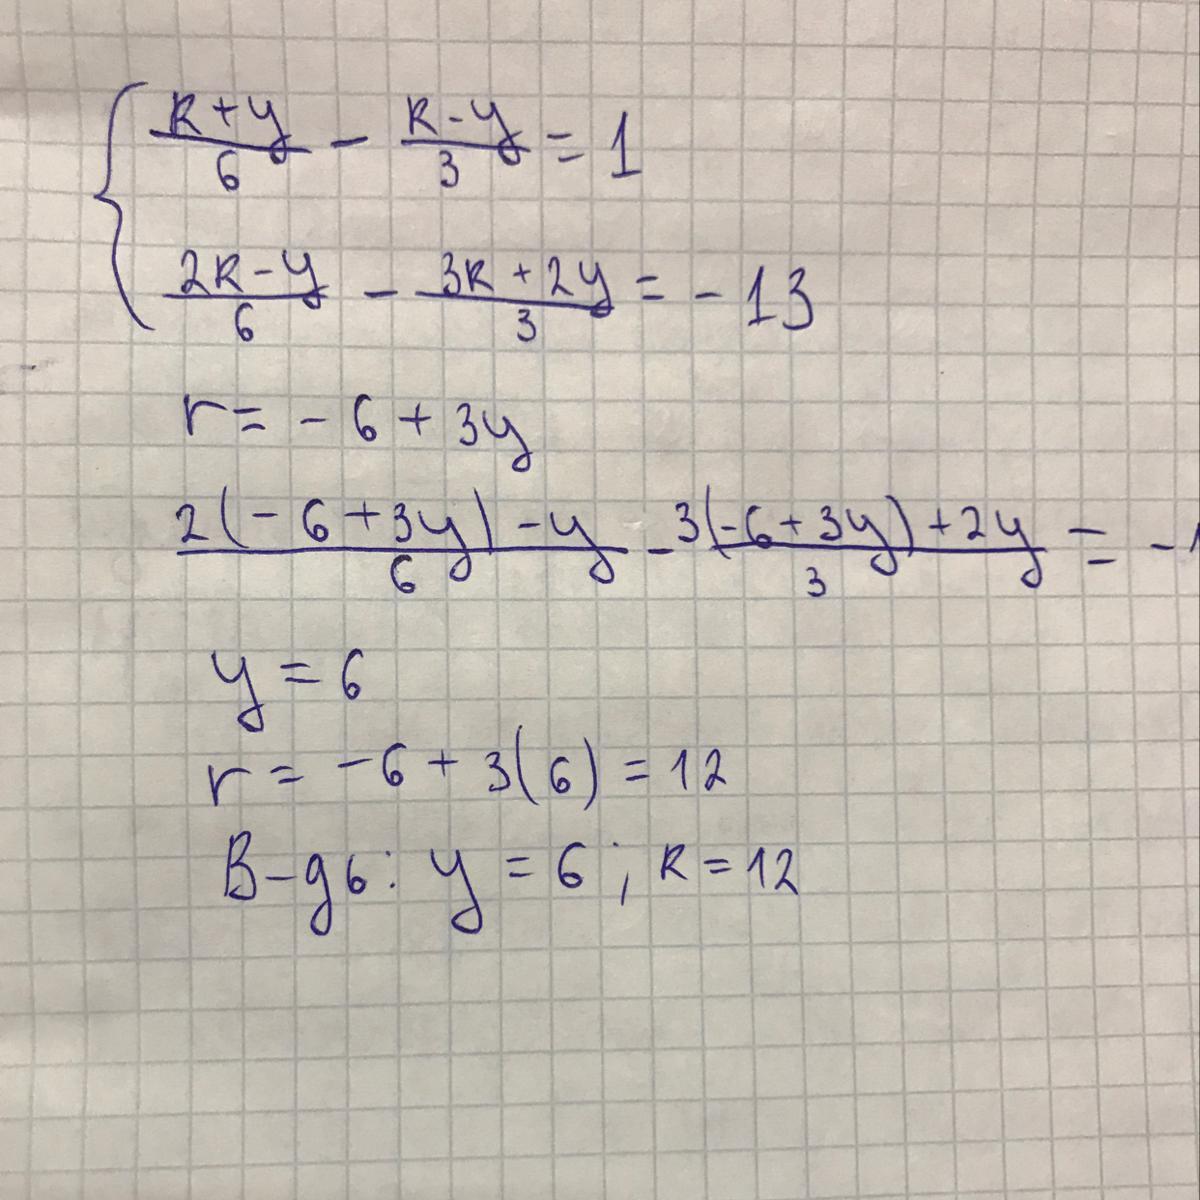 { (R+y)/6 - (R-y)/3 = 1
(2R-y)/6 - (3R+2y)/3 = -13
r = -6+3y
(2(-6+3y)-y)/6 - (3(-6+3y)+2y)/3 = -1
y = 6
r = -6+3(6) = 12
В-дь: y = 6; R = 12